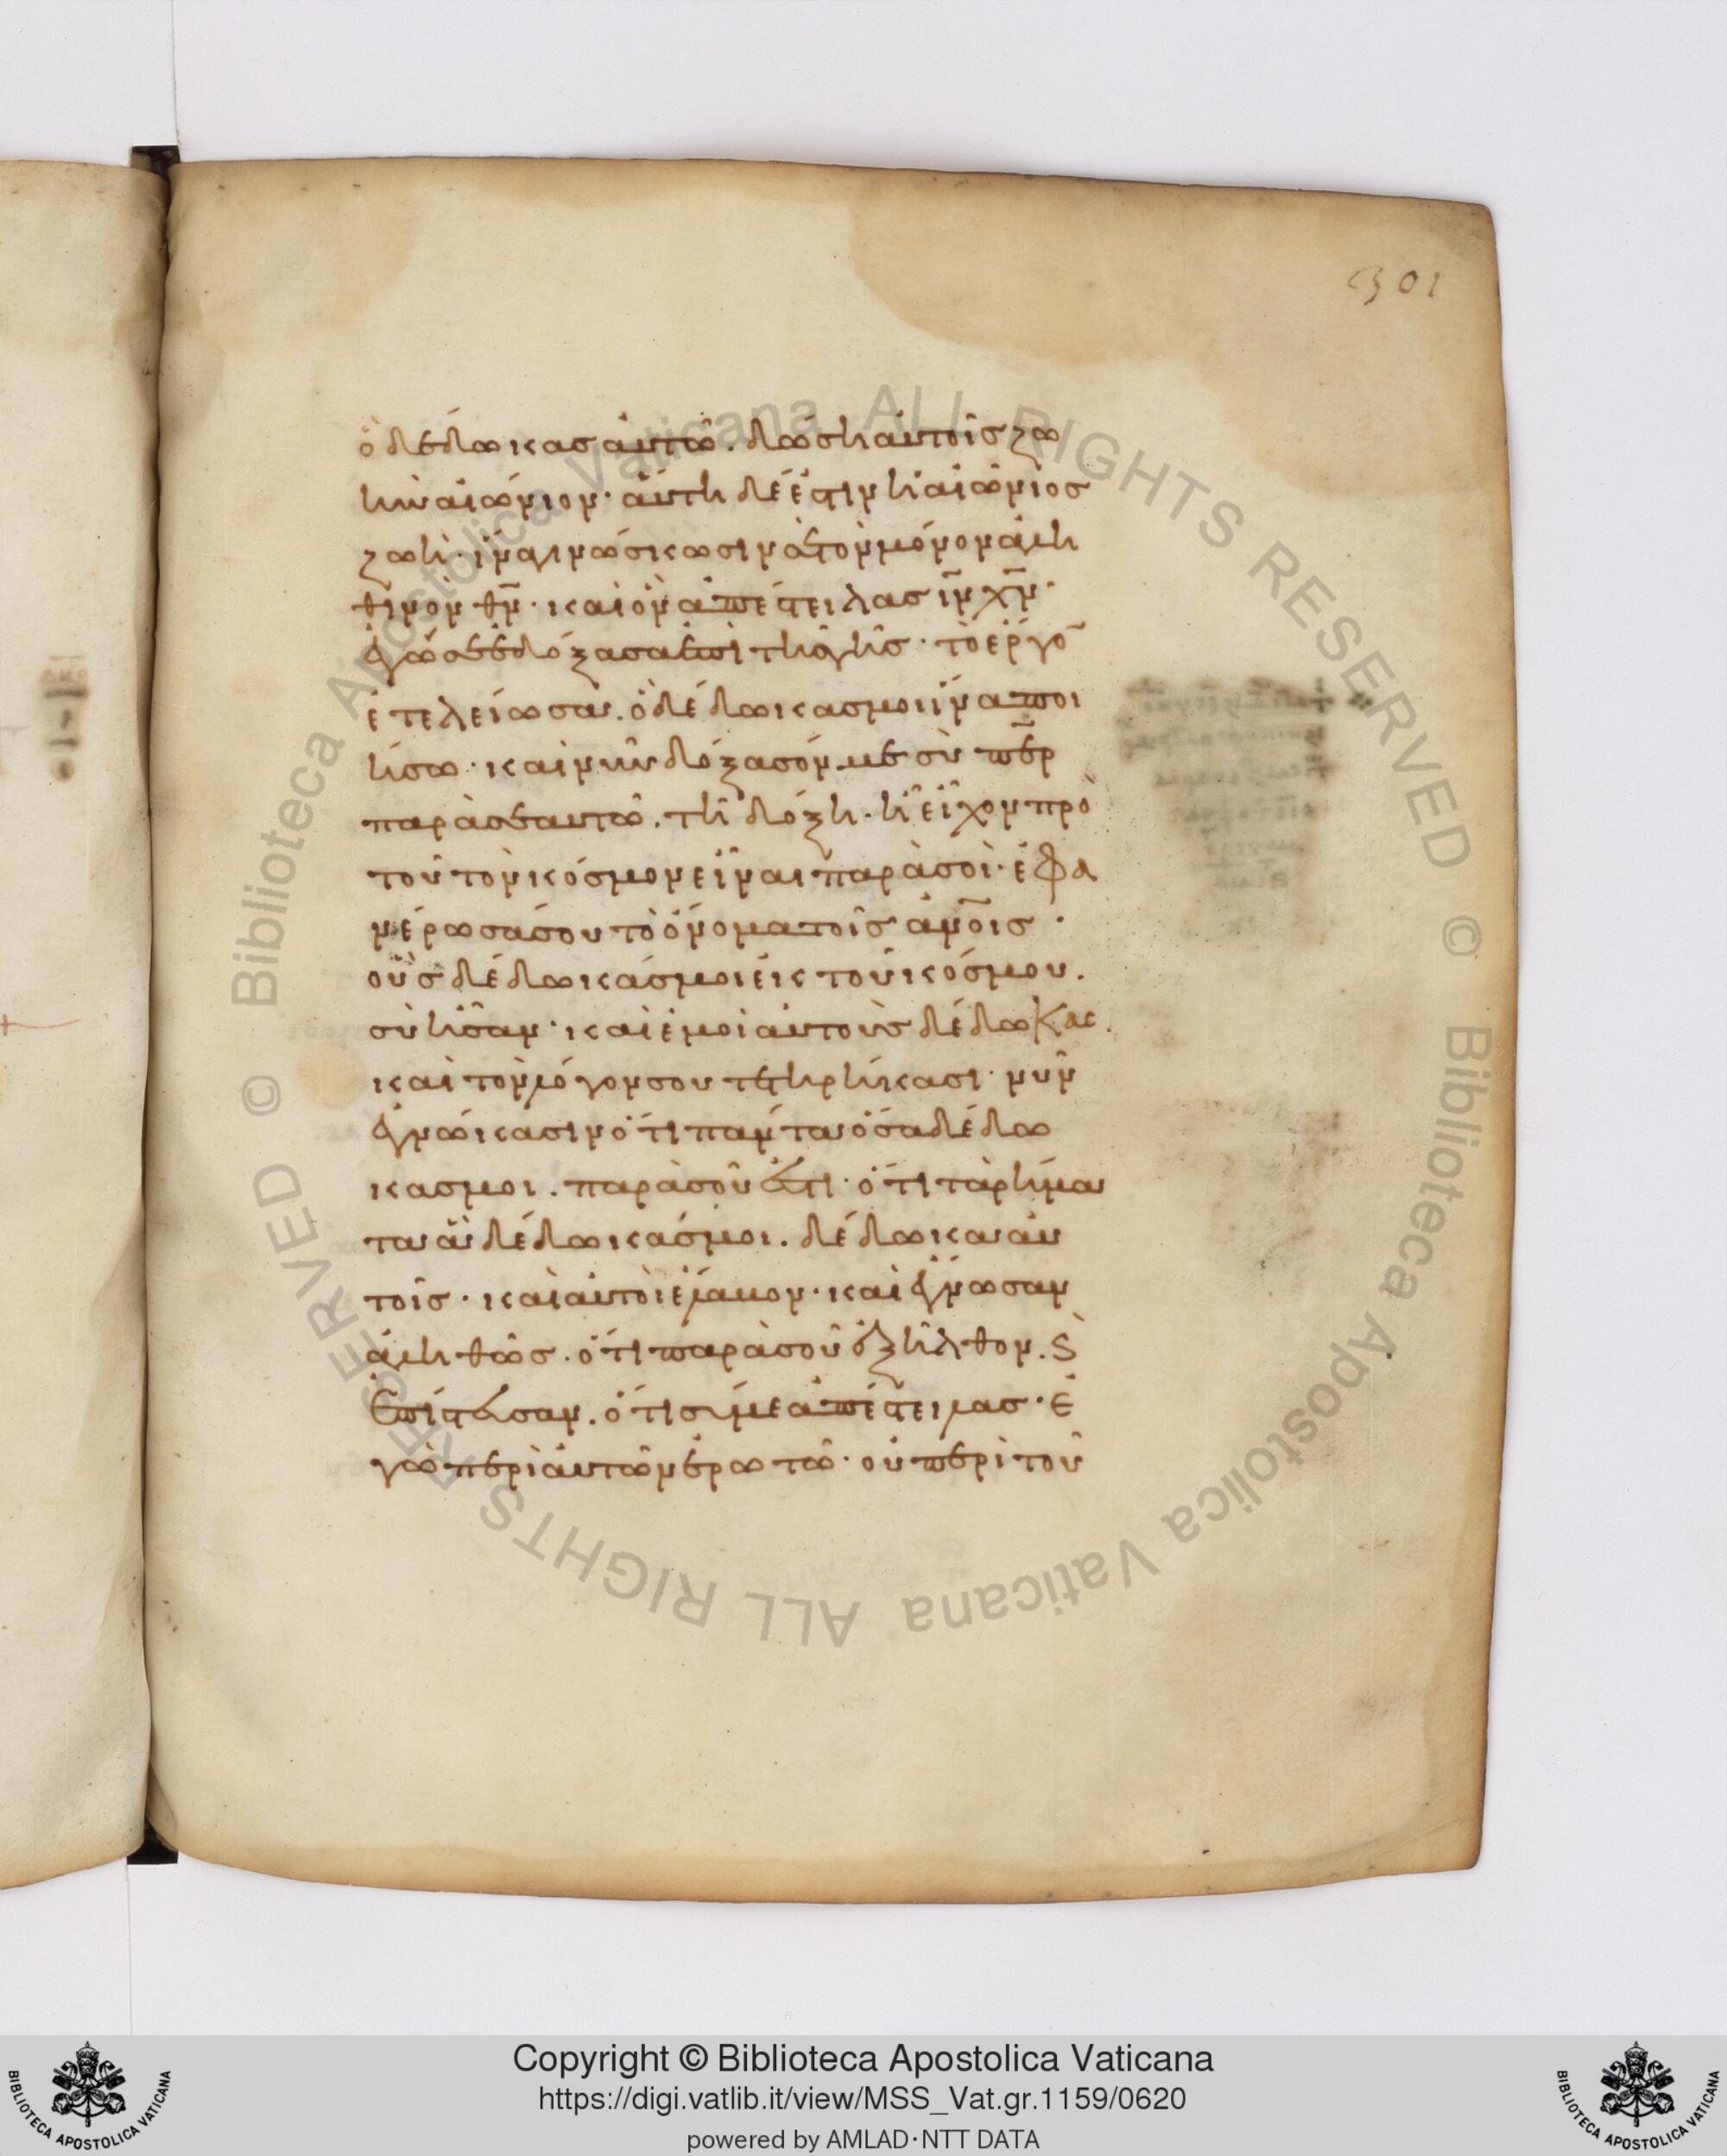 301
ὃ δέδωκας αὐτῶ. δώση αὐτοῖς ζω
ὴν αἰώνιον· αὕτη δέ ἐστιν ἡ αἰώνιος
ζωὴ· ἵνα γινώσκωσιν σὲ τὸν μόνον ἀλη
θινὸν θ̅ν̅· καὶ ὃν ἀπέστειλας ι̅ν̅ χ̅ν̅·
ἐγώ σε ἐδόξασα ἐπὶ τῆς γῆς· τὸ ἔργο̅
ἐτελείωσα. ὃ δέδωκας μοι ἵνα ποι
ήσω· καὶ νῦν δόξασόν με σὺ π̅ε̅ρ
παρὰ σεαυτῶ. τῆ δόξη. ἧ εἶχον πρὸ
τοῦ τὸν κόσμον εἶναι παρὰ σοὶ· ἐφα
νέρωσά σου τὸ ὄνομα τοῖς ἀν̅οις ·
οὓς δέδωκάς μοι ἐκ τοῦ κόσμου.
σοὶ ἦσαν· καὶ ἐμοὶ αὐτοὺς δέδωκας.
καὶ τὸν λόγον σου τετηρήκασι· νῦν
ἐγνώκασιν ὅτι πάντα ὅσα δέδω
κας μοι. παρὰ σοῦ ἐστι· ὅτι τὰ ῥήμα
τα ἃ δέδωκάς μοι. δέδωκα αὐ
τοῖς· καὶ αὐτοὶ ἔλαβον· καὶ ἔγνωσαν
ἀληθῶς. ὅτι παρὰ σοῦ ἐξῆλθον. ϗ
ἐπίστευσαν. ὅτι σύ με ἀπέστειλας· ἐ
γὼ περὶ αὐτῶν ἐρωτῶ· οὐ περὶ τοῦ
© Biblioteca Apostolica Vaticana ALL RIGHTS RESERVED © Biblioteca Apostolica Vaticana ALL RIGHTS RESERVED
Copyright © Biblioteca Apostolica Vaticana
https://digi.vatlib.it/view/MSS_Vat.gr.1159/0620
powered by AMLAD·NTT DATA
BIBLIOTECA APOSTOLICA VATICANA
BIBLIOTECA APOSTOLICA VATICANA